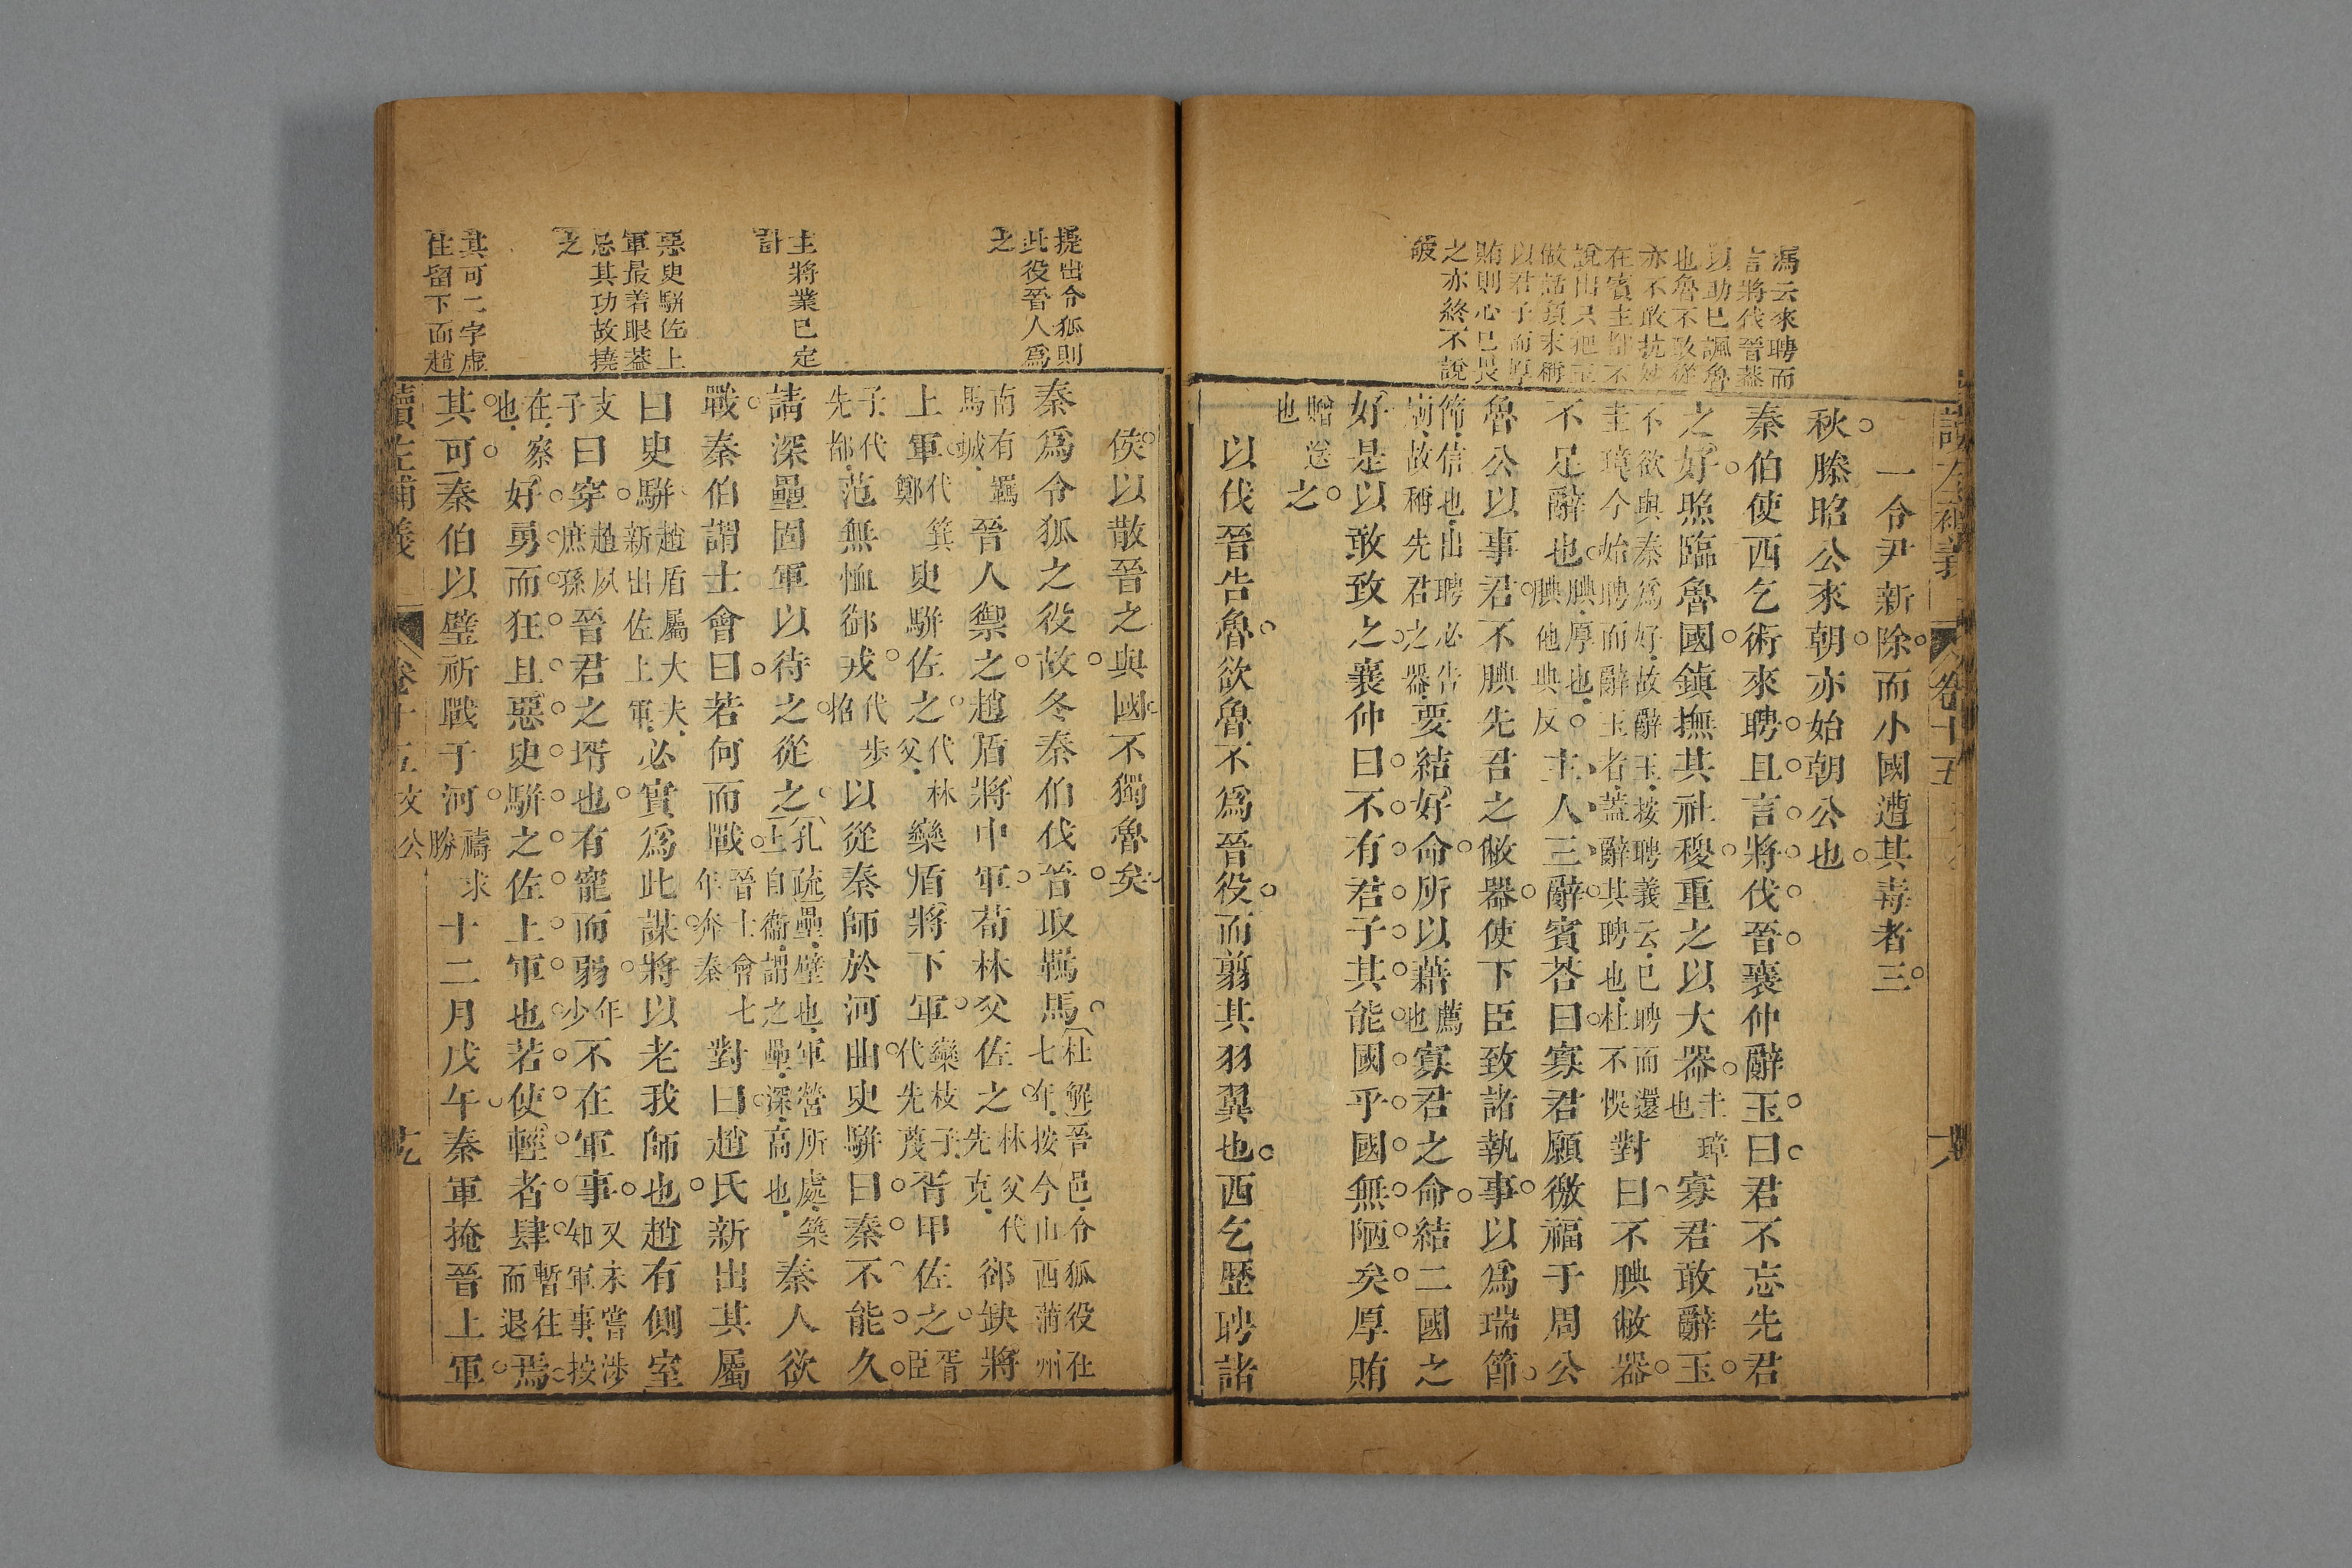 讀左補義
卷十五
馮云來聘而
言將伐晉蓋
以助已諷魯
也魯不敢從
亦不敢抗妙
在賓主都不
說出只把玉
做話頭末稱
以君子而厚
賄則心已畏
之亦終不說
破
一令尹新除而小國遭其毒者三
秋滕昭公來朝亦始朝公也
秦伯使西乞術來聘且言將伐晉襄仲辭玉曰君不忘先君
之好照臨魯國鎮撫其社稷重之以大器圭璋也寡君敢辭玉
不欲與秦爲好故辭玉按聘義云已聘而還圭璋今始聘而辭玉者蓋辭其聘也杜不悞對曰不腆敝器
不足辭也腆厚也腆他典反主人三辭賓荅曰寡君願徼福于周公
魯公以事君不腆先君之敝器使下臣致諸執事以爲瑞節
節信也出聘必告廟故稱先君之器要結好命所以藉薦也寡君之命結二國之
好是以敢致之襄仲曰不有君子其能國乎國無陋矣厚賄
贈送也之
以伐晉告魯欲魯不爲晉役而翦其羽翼也西乞歷聘諸
提出令狐則
此役晉人爲
之
主將業已定
計
惡史駢佐上
軍最着眼蓋
忌其功故撓
之
其可二字虛
住留下面趙
侯以散晉之與國不獨魯矣
秦爲令狐之役故冬秦伯伐晉取羈馬杜解晉邑令狐役在七年按今山西蒲州
南有羈馬城晉人禦之趙盾將中軍荀林父佐之林父代先克郤缺將
上軍代箕鄭臾駢佐之代林父欒盾將下軍欒枝子代先蔑胥甲佐之胥臣
子代先都范無恤御戎代步招以從秦師於河曲臾駢曰秦不能久
請深壘固軍以待之從之孔疏壘壁也軍營所處築土自衞謂之壘深高也秦人欲
戰秦伯謂士會曰若何而戰晉士會七年奔秦對曰趙氏新出其屬
曰臾駢趙盾屬大夫新出佐上軍必實爲此謀將以老我師也趙有側室
支子曰穿趙夙庶孫晉君之壻也有寵而弱年少不在軍事又未嘗涉知軍事按
在察也好勇而狂且惡臾駢之佐上軍也若使輕者肆暫往而退焉
其可秦伯以璧祈戰于河禱求勝十二月戊午秦軍掩晉上軍
讀左補義
卷十五文公